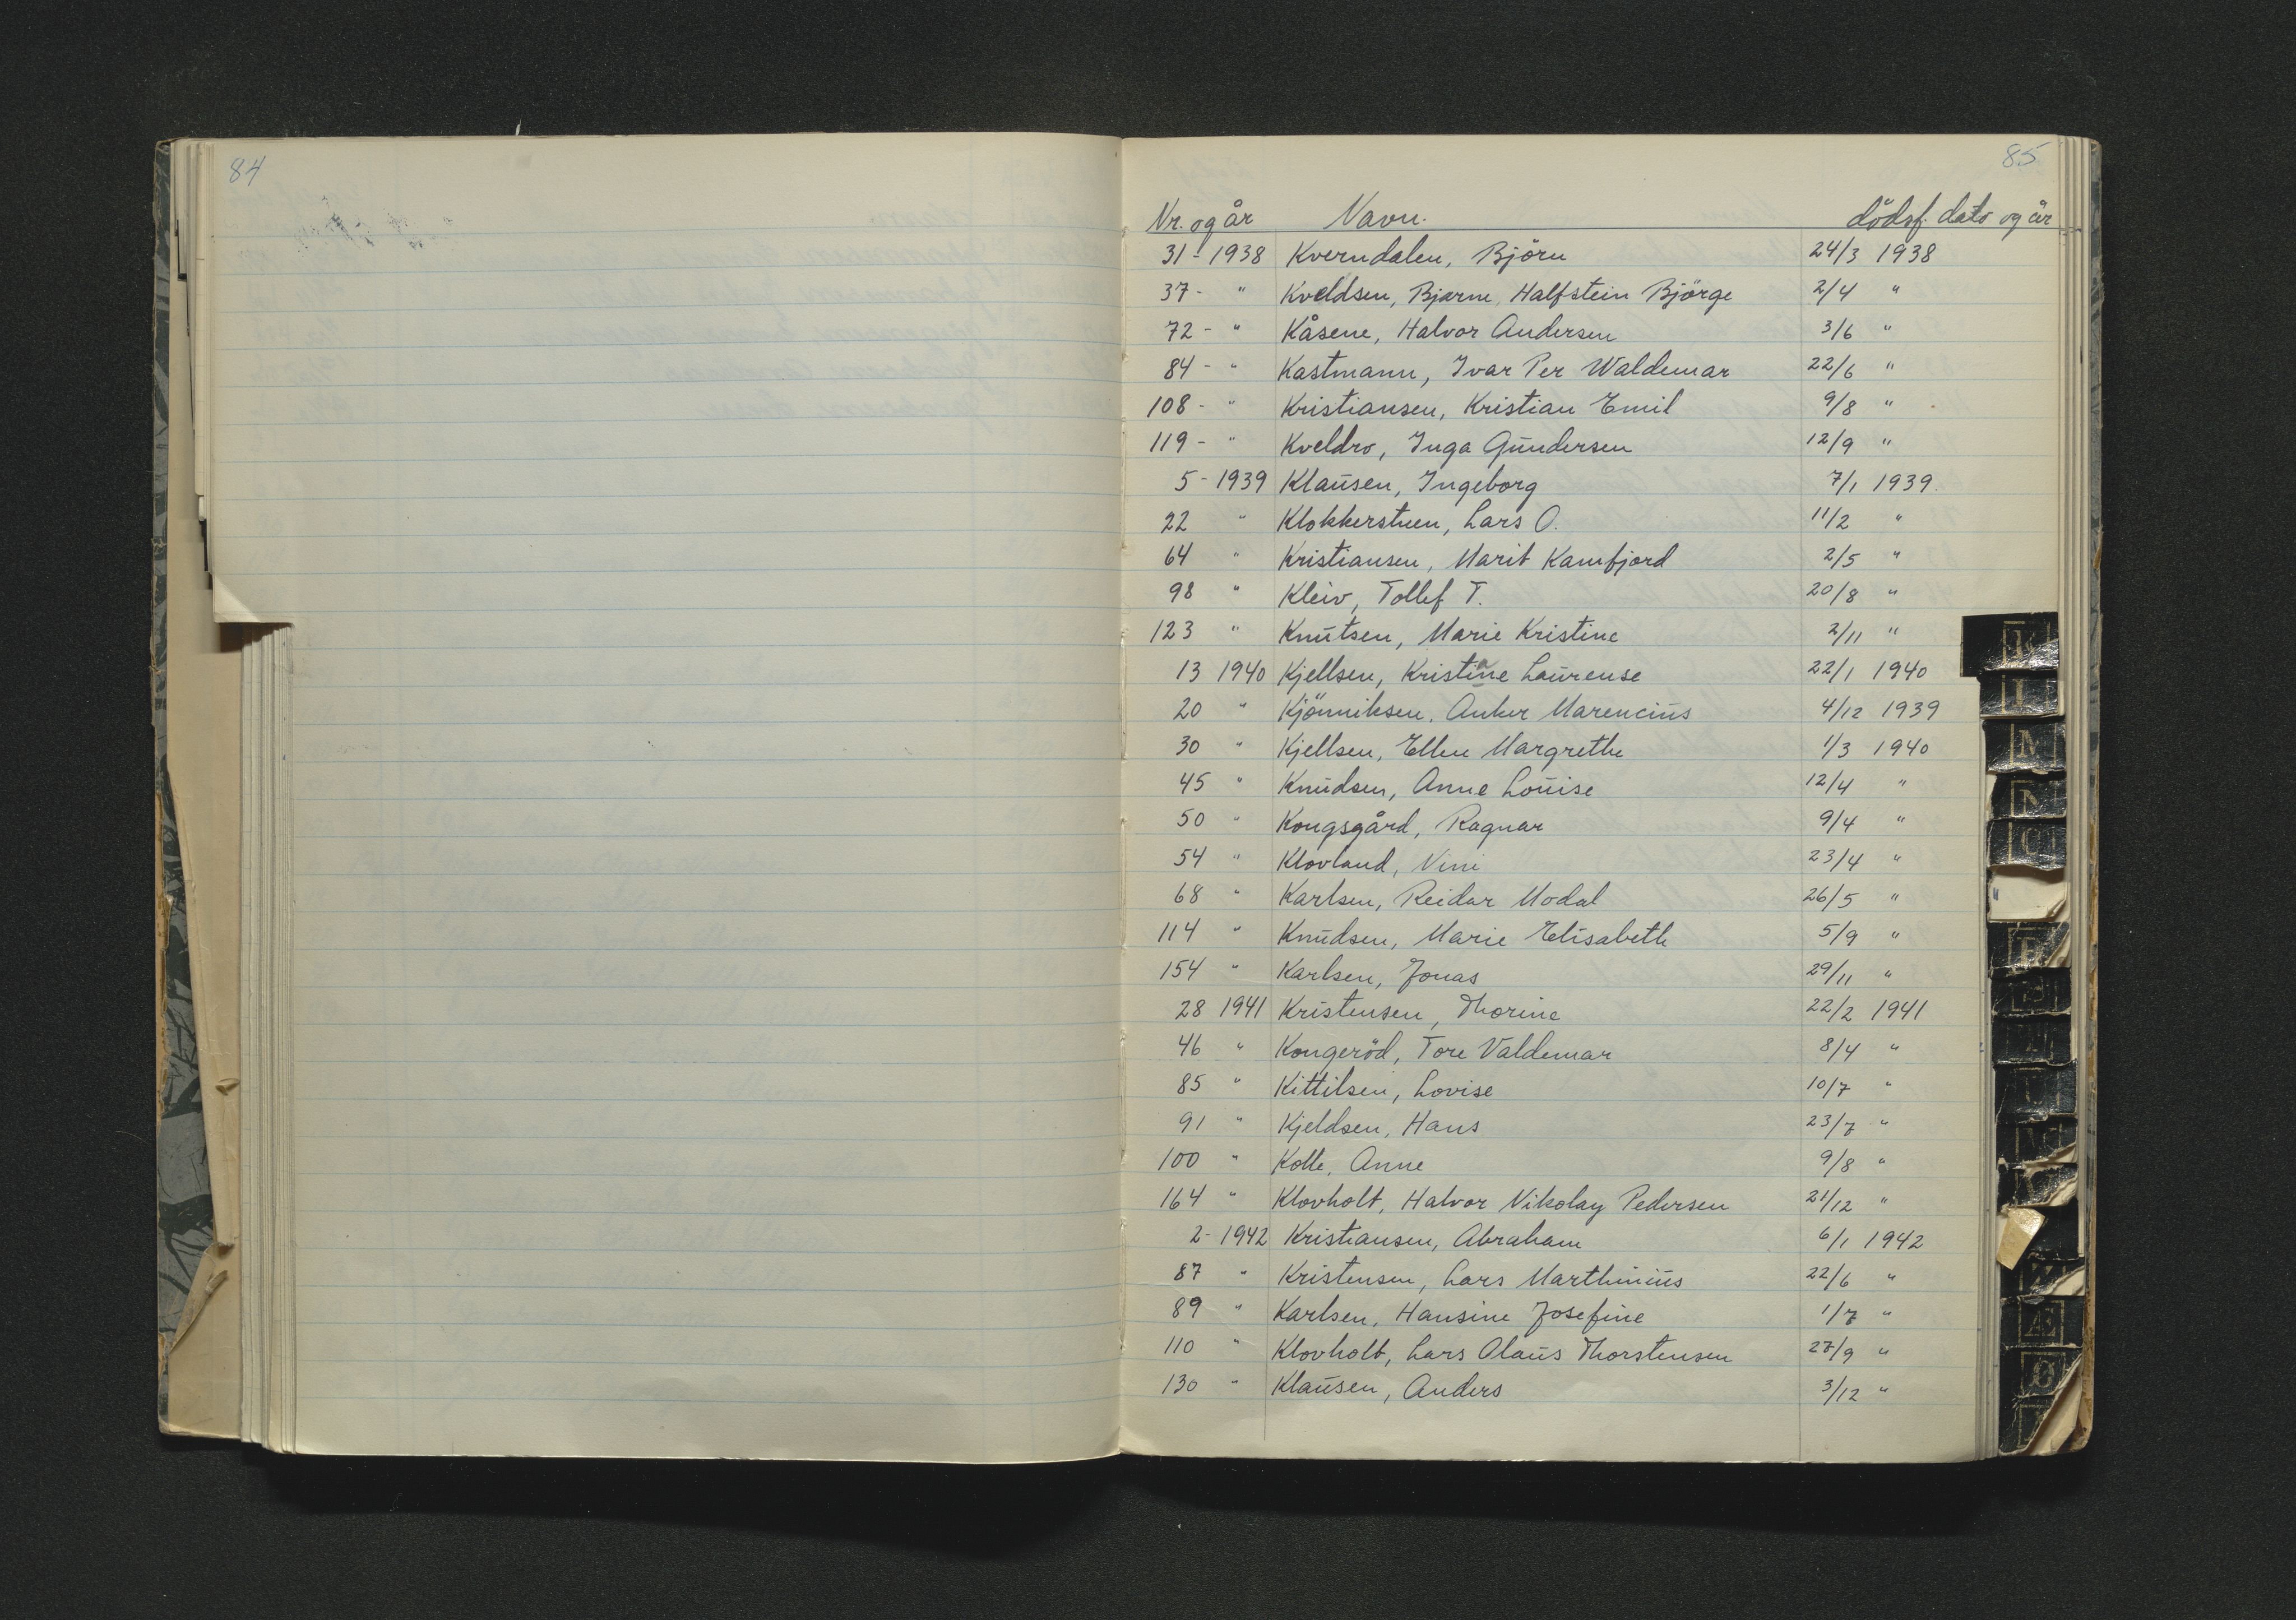 84
85
Nr. og år Navn. dödsf. dato og år
31 - 1938 Kverndalen, Björn 24/3 1938
37 - " Kveldsen, Bjarne, Halfstein Björge 2/4 "
72 - " Kåsene, Halvor Andersen 3/6 "
84 - " Kastmann, Ivar Per Waldemar 22/6 "
108 - " Kristiansen, Kristian Emil 9/8 "
119 - " Kveldro, Inga Gundersen 12/9 "
5 - 1939 Klausen, Ingeborg 7/1 1939.
22 " Klokkerstuen, Lars O. 11/2 "
64 " Kristiansen, Marit Kamfjord 2/5 "
98 " Kleiv, Tollef T. 20/8 "
123 " Knutsen, Marie Kristine 2/11 "
13 1940 Kjellsen, Kristine Laurense 22/1 1940
20 " Kjönniksen, Anker Marencius 4/12 1939
30 " Kjellsen, Ellen Margrethe 1/3 1940
45 " Knudsen, Anne Louise 12/4 "
50 " Kongsgård, Ragnar 9/4 "
54 " Klovland, Vini 23/4 "
68 " Karlsen, Reidar Modal 26/5 "
114 " Knudsen, Marie Elisabeth 5/9 "
154 " Karlsen, Jonas 29/11 "
28 1941 Kristensen, Thorine 22/2 1941
46 " Kongeröd, Tore Valdemar 8/4 "
85 " Kittilsen, Lovise 10/7 "
91 " Kjeldsen, Hans 23/7 "
100 " Kolle, Anne 9/8 "
164 " Klovholt, Halvor Nikolay Pedersen 21/12 "
2 - 1942 Kristiansen, Abraham 6/1 1942
87 " Kristensen, Lars Marthinius 22/6 "
89 " Karlsen, Hansine Josefine 1/7 "
110 " Klovholt, Lars Olaus Thorstensen 27/9 "
130 " Klausen, Anders 3/12 "
K
L
M
N
Æ
Ø